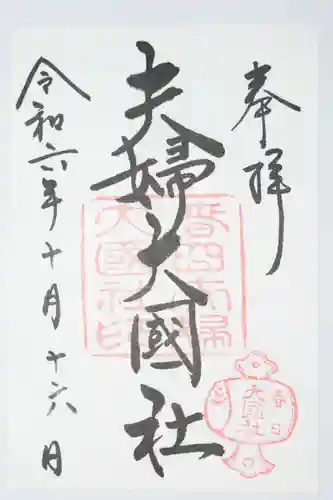 奉拝
夫婦大國社
春日夫婦
大國社印
春日
大國社
令和六年十月十六日